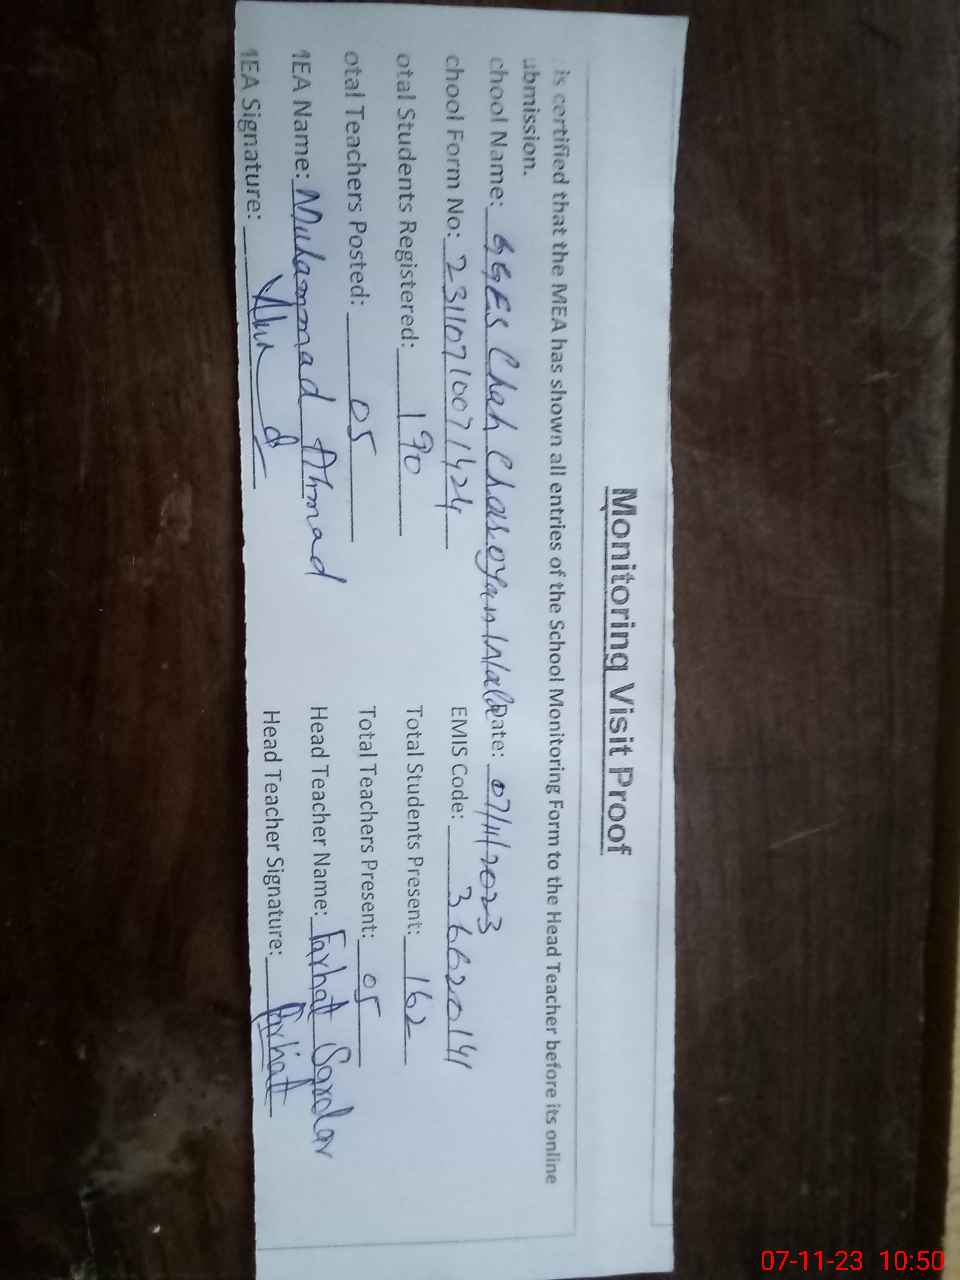 Monitoring Visit Proof
is certified that the MEA has shown all entries of the School Monitoring Form to the Head Teacher before its online
ubmission.
chool Name: GGES Chah Date: 07/11/2023
chool Form No: 23110710071424 EMIS Code: 36620141
otal Students Registered: 190 Total Students Present: 162
otal Teachers Posted: 05 Total Teachers Present: 05
MEA Name: Muhammad Ahmad Head Teacher Name: Farhat Sardar
MEA Signature: Head Teacher Signature: Farhat
07-11-23 10:50